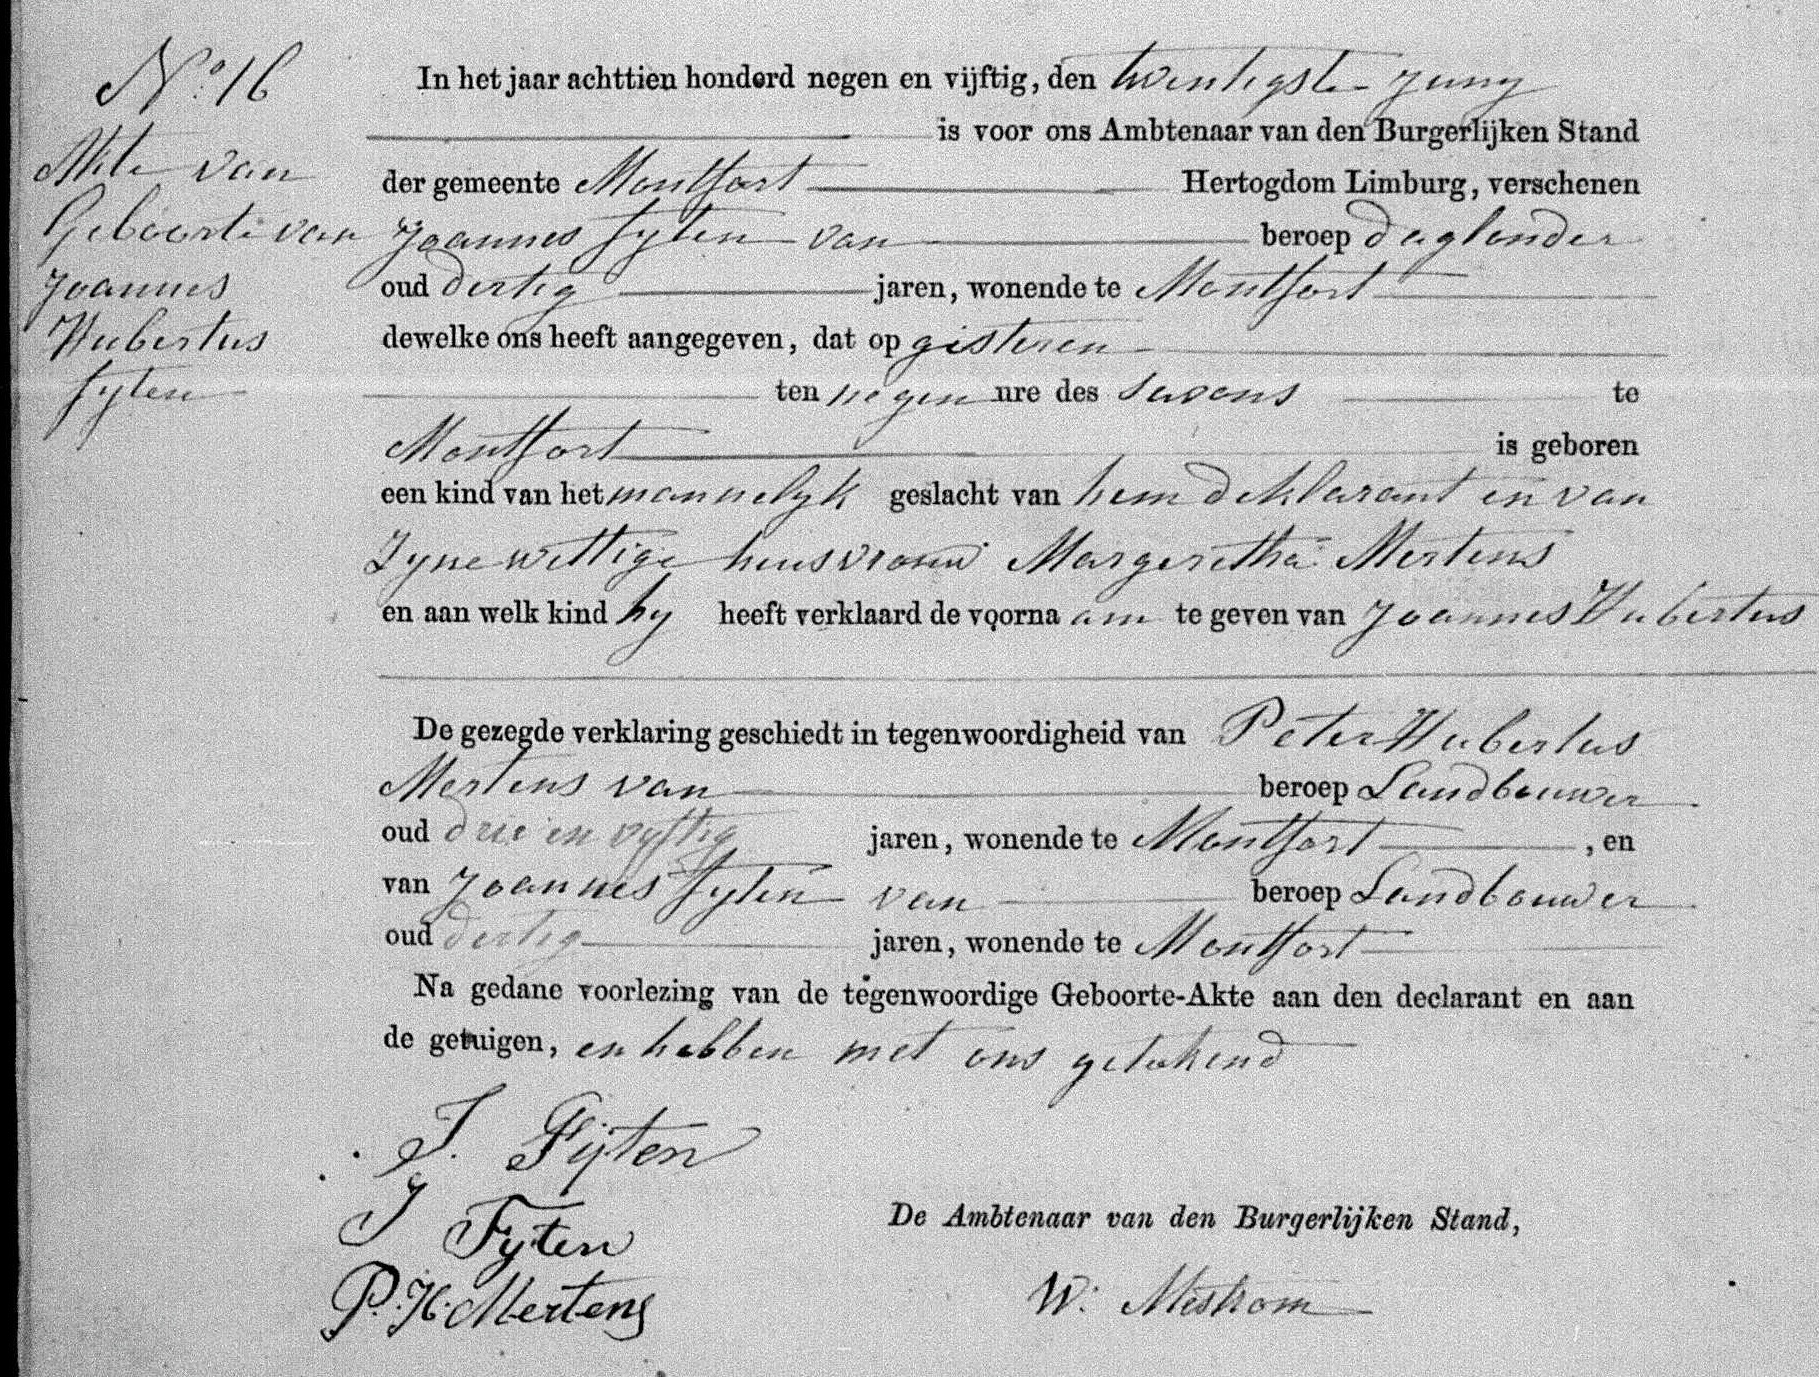 N° 16
Akte van
Geboorte van
Joannes
Hubertus
Fyten
In het jaar achttien honderd negen en vijftig, den twentigste Juny
is voor ons Ambtenaar van den Burgerlijken Stand
der gemeente Montfort Hertogdom Limburg, verschenen
Joannes Fyten van beroep daglonder
oud dertig jaren, wonende te Montfort
dewelke ons heeft aangegeven, dat op gisteren
ten negen ure des savons te
Montfort is geboren
een kind van het mannelyk geslacht van hem deklarant en van
Zyne wettige huisvrouw Margeretha Mertens
en aan welk kind hy heeft verklaard de voorna am te geven van Joannes Hubertus
De gezegde verklaring geschiedt in tegenwoordigheid van Peter Hubertus
Mertens van beroep Landbouwer
oud drie en vyftig jaren, wonende te Montfort, en
van Joannes Fyten van beroep Landbouwer
oud dertig jaren, wonende te Montfort
Na gedane voorlezing van de tegenwoordige Geboorte-Akte aan den declarant en aan
de getuigen, en hebben met ons getekend
J. Fijten
J Fyten
P. H. Mertens
De Ambtenaar van den Burgerlijken Stand,
W. Mestrom